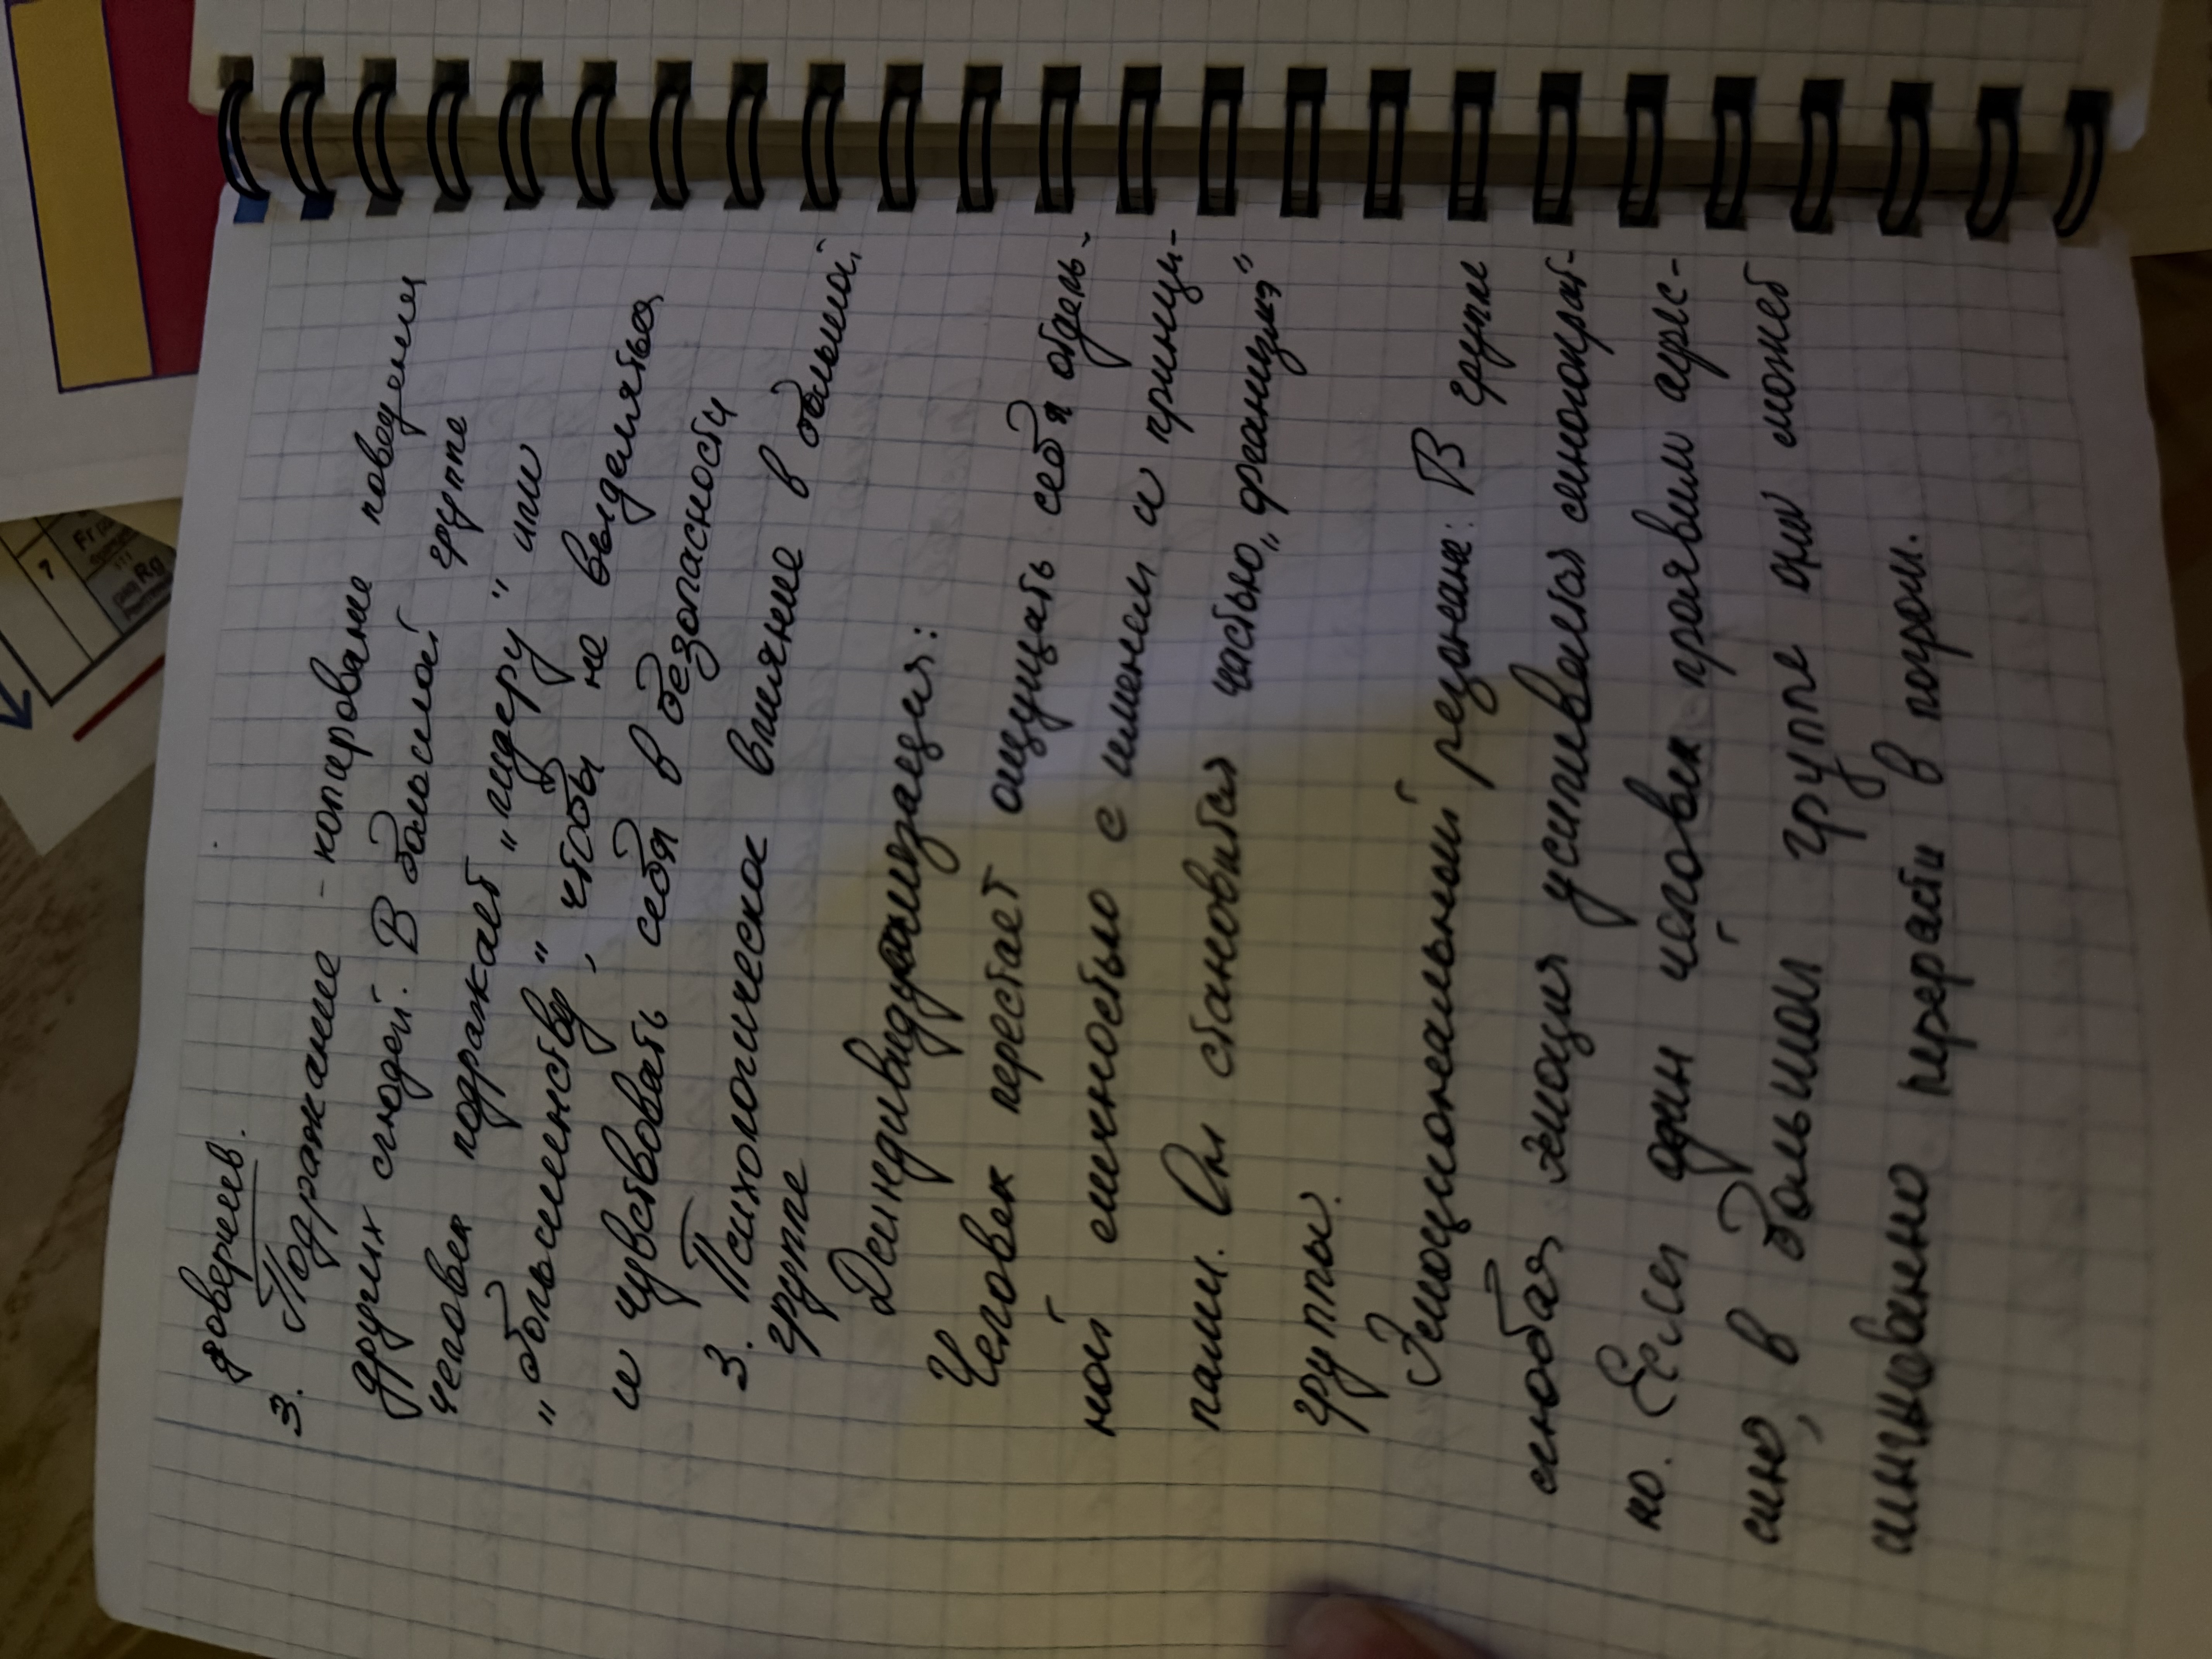 доверием.
3. Подражание - копирование поведения
других людей. В большой группе
человек подражает „лидеру" или
„большинству", чтобы не выделяться
и чувствовать себя в безопасности
3. Психологическое влияние в большой
группе
Деиндивидуализация:
Человек перестает ощущать себя отдель-
ной личностью с именем и принци-
пами. Он становится частью
группы.
Эмоциональный резонанс: В группе
любая эмоция усиливается многократ-
но. Если один человек проявил агрес-
сию, в большой группе она может
мгновенно перерасти в погром.
7
Rg